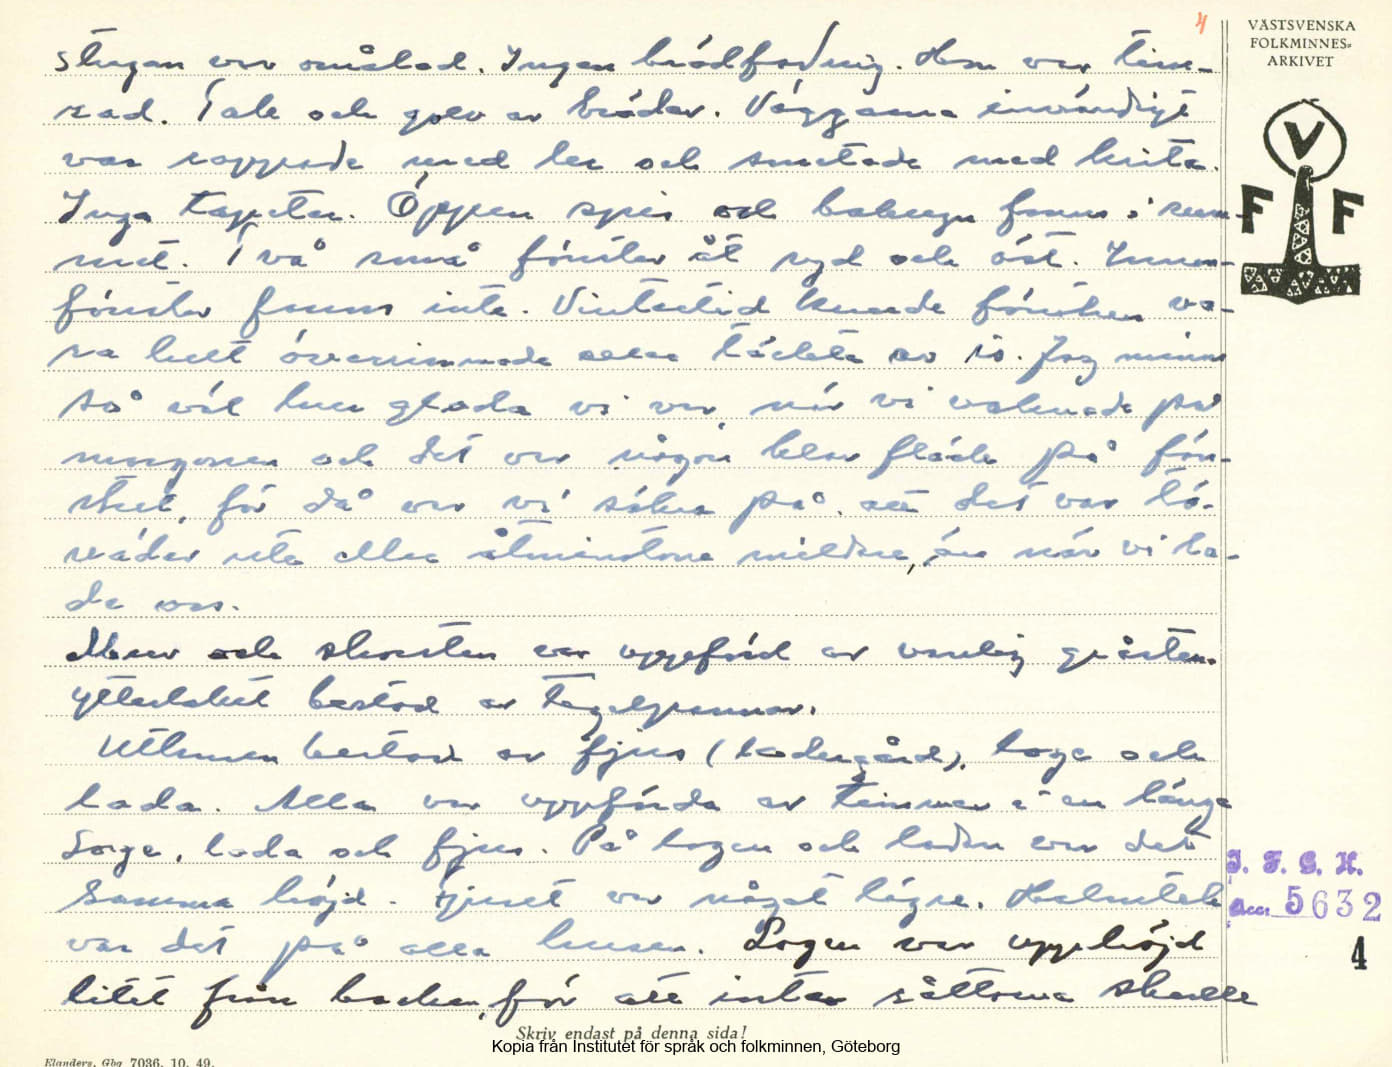 4
VÄSTSVENSKA
FOLKMINNES-
ARKIVET
V
F F
stugan var omålad. Ingen brädfodring. Hon var tim-
rad. Tak och golv av bräder. Väggarna invändigt
var rappade med ler och smetade med krita.
Inga tapeter. Öppen spis och bakugn fanns i rum-
met. Två små fönster åt syd och öst. Innan-
fönster fanns inte. Vintertid kunde fönstren va-
ra helt överrimmade eller täckta av is. Jag minns
så väl hur glada vi var, när vi vaknade på
morgonen och det var någon klar fläck på fön-
stret, för då var vi säkra på, att det var tö-
väder ute eller åtminstone mildare, än när vi la-
de oss.
Mur och skorsten var uppförd av vanlig gråsten.
Yttertaket bestod av tegelpannor.
Uthusen bestod av fjus (ladergård), loge och
lada. Alla var uppförda av timmer i en länga
Loge, lada och fjus. På logen och ladan var det
samma höjd. Fjuset var något lägre. Halmtak
var det på alla husen. Logen var upphöjd
litet från backen, för att inte råttorna skulle
I. F. G. H.
Acc. 5632
4
Skriv endast på denna sida!
Kopia från Institutet för språk och folkminnen, Göteborg
Elanders, Gbg 7036. 10. 49.